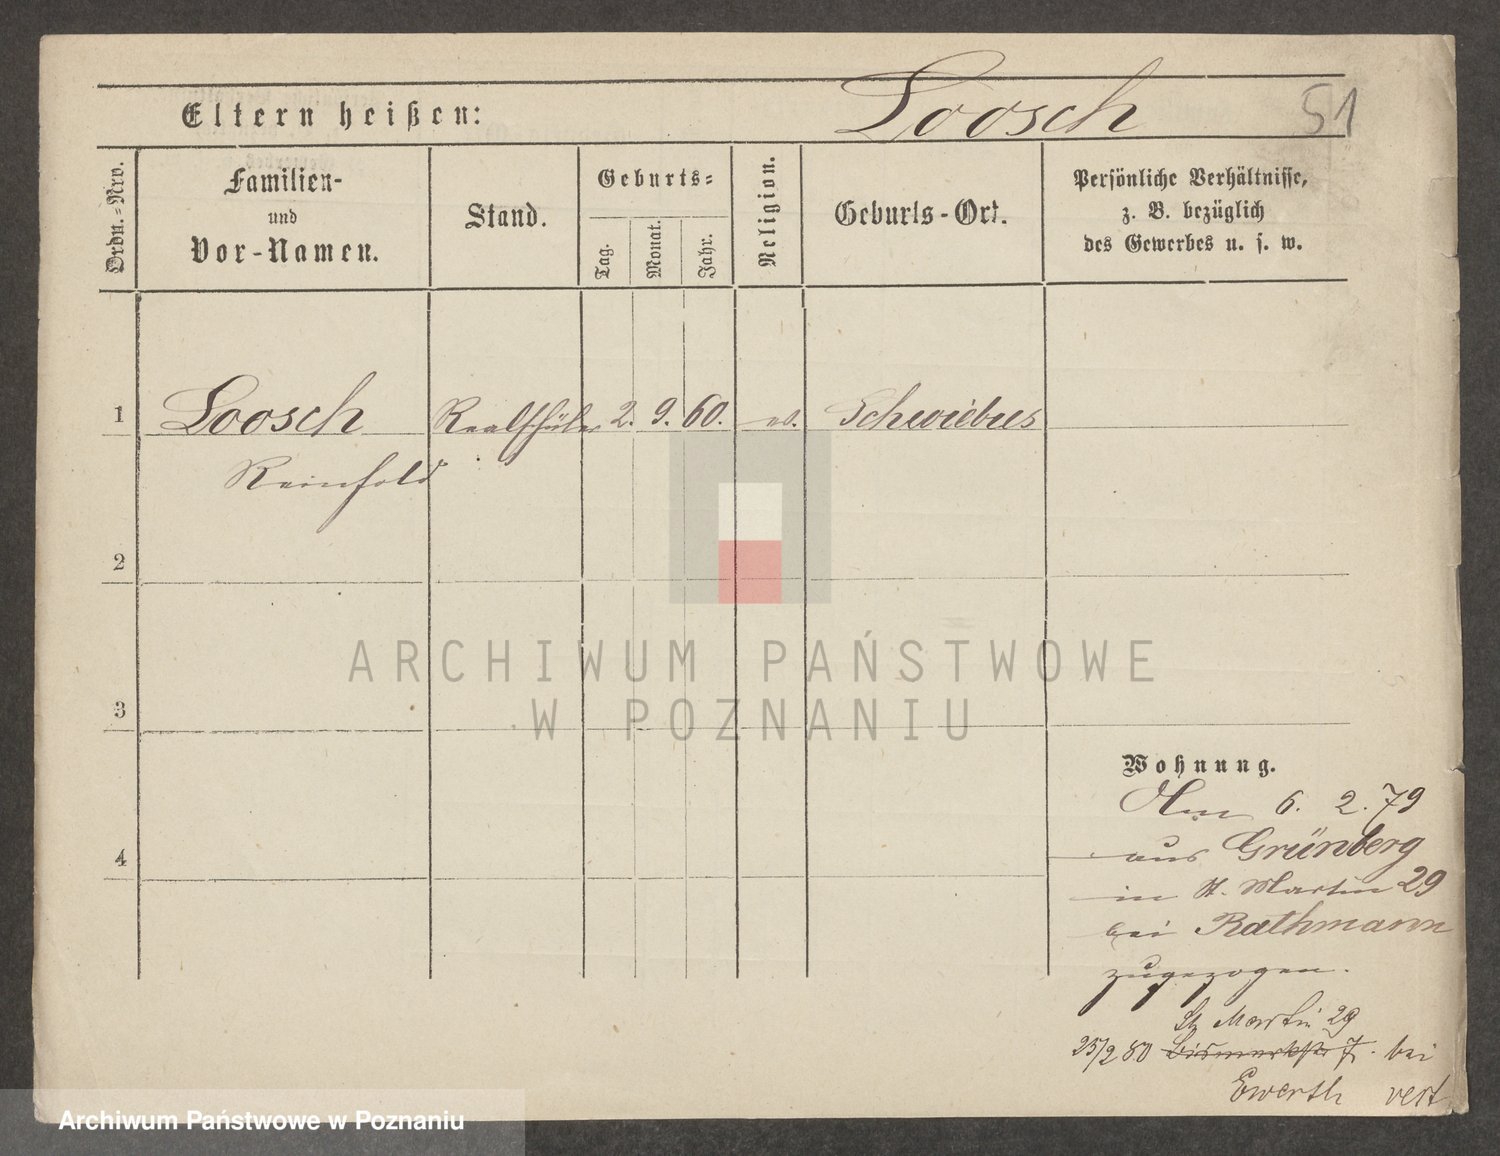 Loosch 51
Eltern heißen:
Ordn.-Nro.
Familien-
und
Vor-Namen.
Stand.
Geburts-
Tag.
Monat.
Jahr.
Religion.
Geburts-Ort.
Persönliche Verhältnisse,
z. B. bezüglich
des Gewerbes u. s. w.
1 Loosch Realschüler 2. 9. 60. ev. Schwiebus
Reinhold
2
3
4
ARCHIWUM PAŃSTWOWE
W POZNANIU
Wohnung.
Am 6. 2. 79
aus Grünberg
in St. Martin 29
bei Rathmann
zugezogen.
St Martin 29
25/2 80 Bismarckstr 7. bei
Ewerth
Archiwum Państwowe w Poznaniu